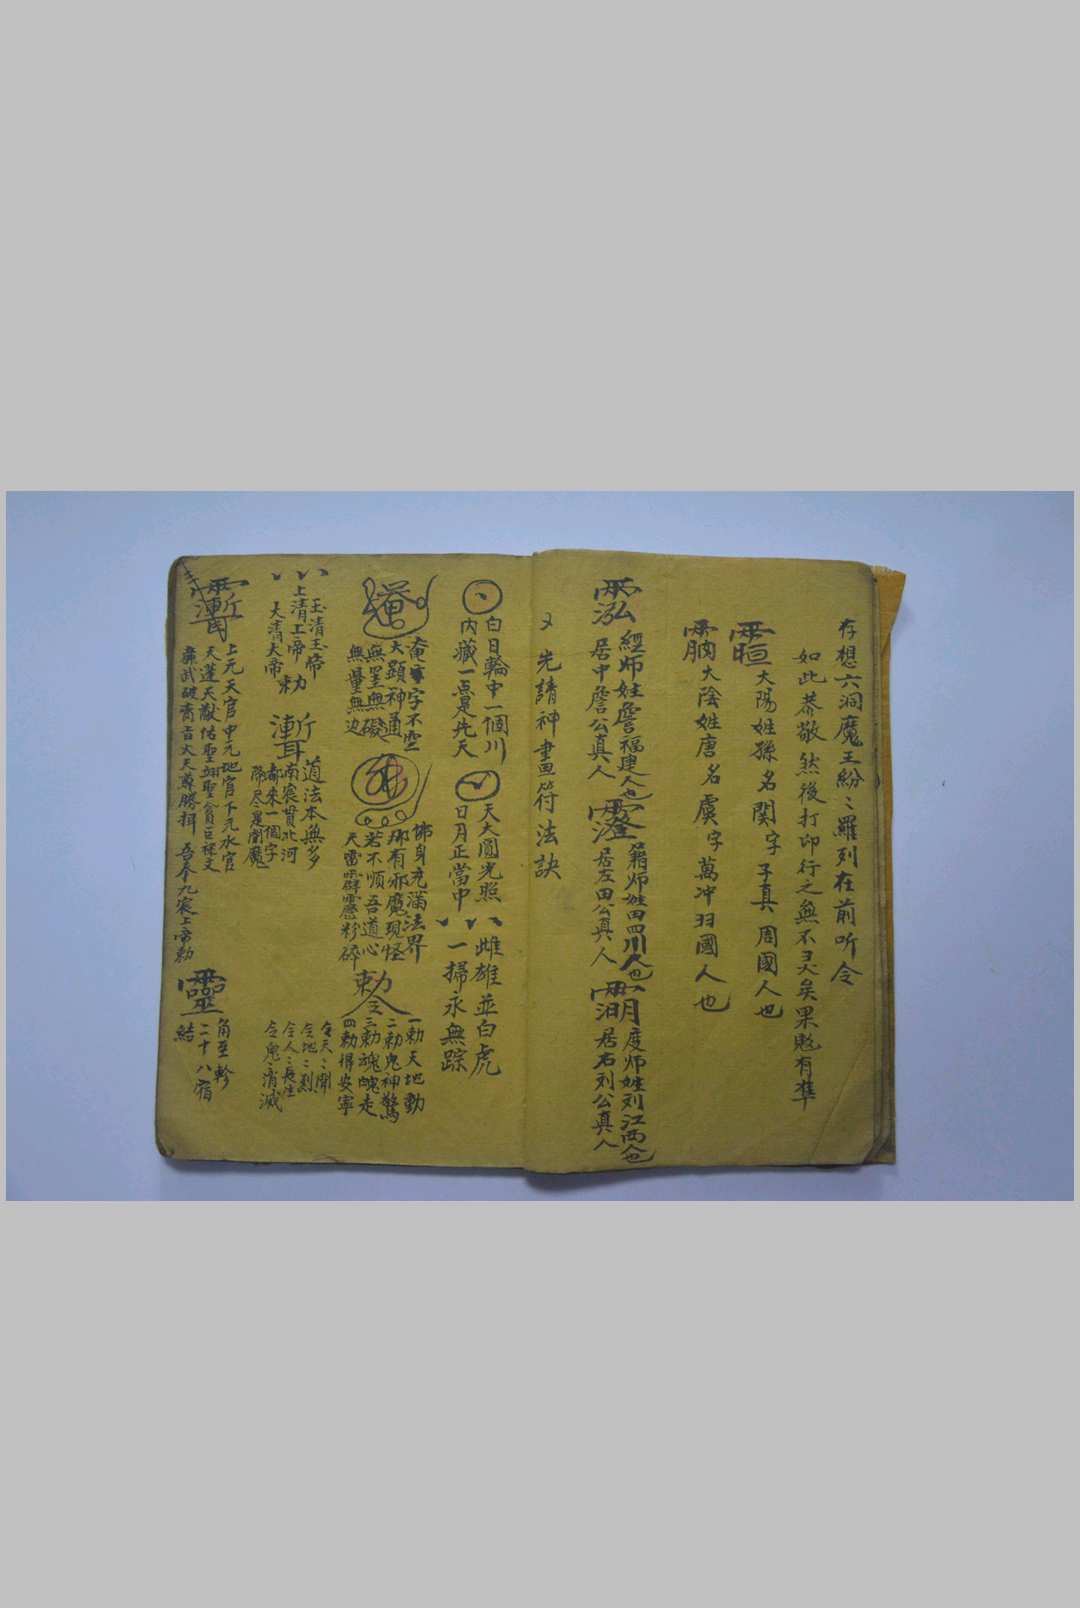 存想六洞魔王紛〻羅列在前听令
如此恭敬然後打印行之無不灵矣果驗有準
太陽姓孫名関字子真周國人也
太陰姓唐名虞字萬冲羽國人也
經師姓詹福建人也
居中詹公真人
籍师姓田四川人也
居左田公真人
度师姓刘江西人也
居右刘公真人
又先請神畫符法訣
白日輪中一個川
内藏一点是先天
天大圓光照
日月正當中
雌雄並白虎
一掃永無踪
唵
唵字不空
大顕神通
無罣無礙
無量無边
佛
佛身充滿法界
那有邪魔現怪
若不順吾道心
天雷霹靂粉碎
勅令
一勅天地動
二勅鬼神驚
三勅魂魄走
四勅得安寧
玉清玉帝
上清上帝
太清大帝
勅
道法本無多
南宸貫北河
都来一個字
降尽是閻魔
令天〻開
令地〻烈
令人〻長生
令鬼〻消滅
上元天官中元地官下元水官
天蓬天猷佑聖翊聖
吾奉九宸上帝勅
靈
角至軫
二十八宿
結